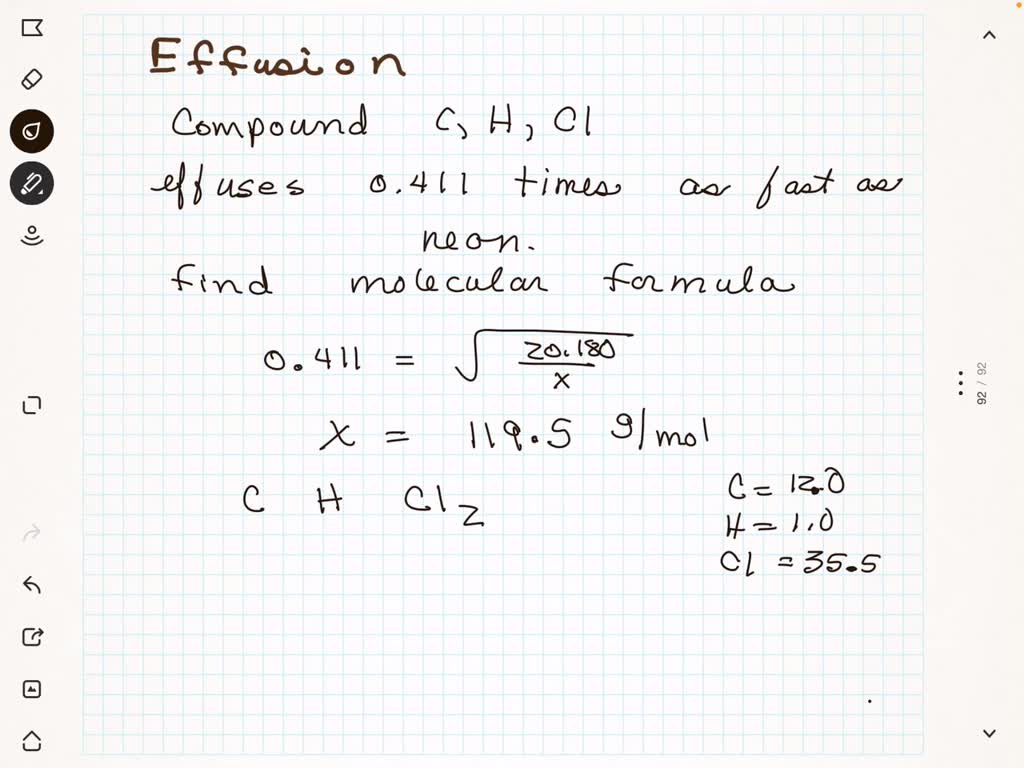 Effusion
Compound C, H, Cl
effuses 0.411 times as fast as
neon.
find molecular formula
0.411 = √(20.180/x)
x = 119.5 g/mol
C H Cl₂
C = 12.0
H = 1.0
Cl = 35.5
92 / 92